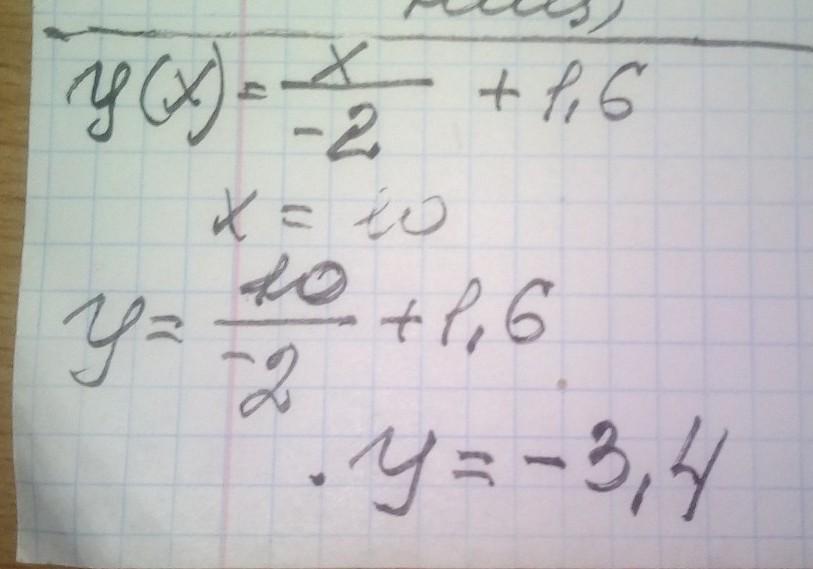 y(x) = x/-2 + 1,6
x = 10
y = 10/-2 + 1,6
. y = -3,4